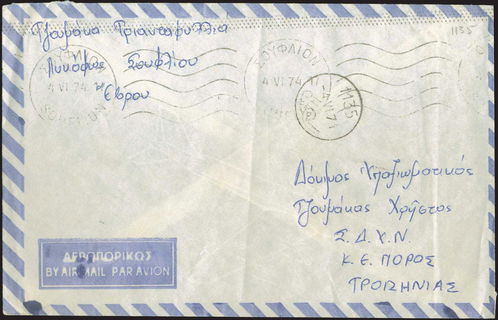 Τζουμάκα Τριανταφυλλιά
Λυκόφως Σουφλίου
Έβρου
ΣΟΥΦΛΙΟΝ
4 VI 74
SOUFLION
ΣΟΥΦΛΙΟΝ
4 VI 74
1135
1135
Δόκιμος Υπαξιωματικός
Τζουμάκας Χρήστος
Σ. Δ. Υ. Ν.
Κ. Ε. ΠΟΡΟΣ
ΤΡΟΙΖΗΝΙΑΣ
ΑΕΡΟΠΟΡΙΚΩΣ
BY AIR MAIL PAR AVION